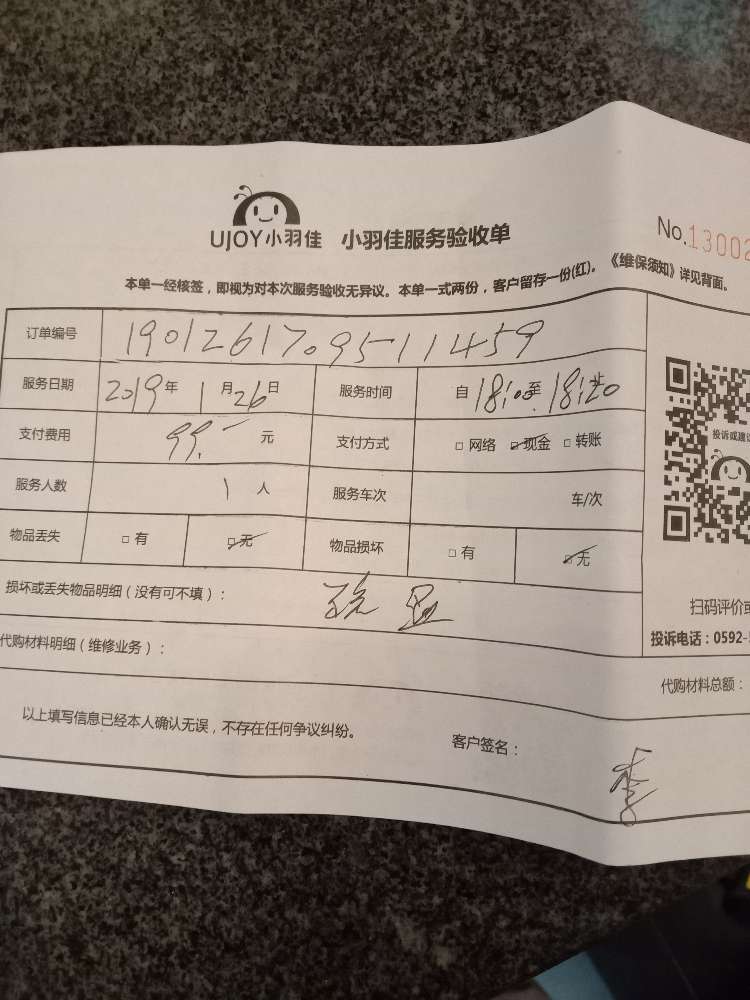 UJOY小羽佳 小羽佳服务验收单
No.13002
本单一经核签，即视为对本次服务验收无异议。本单一式两份，客户留存一份(红)。《维保须知》详见背面。
订单编号 1901261709511459
服务日期 2019年 1月26日 服务时间 自18:00至18:20止
支付费用 99.- 元 支付方式 □网络 □现金 □转账
服务人数 1人 服务车次 车/次
物品丢失 □有 □无 物品损坏 □有 □无
投诉或建议
损坏或丢失物品明细（没有可不填）：
扫码评价或
投诉电话：0592-
代购材料明细（维修业务）：
代购材料总额：
以上填写信息已经本人确认无误，不存在任何争议纠纷。
客户签名：